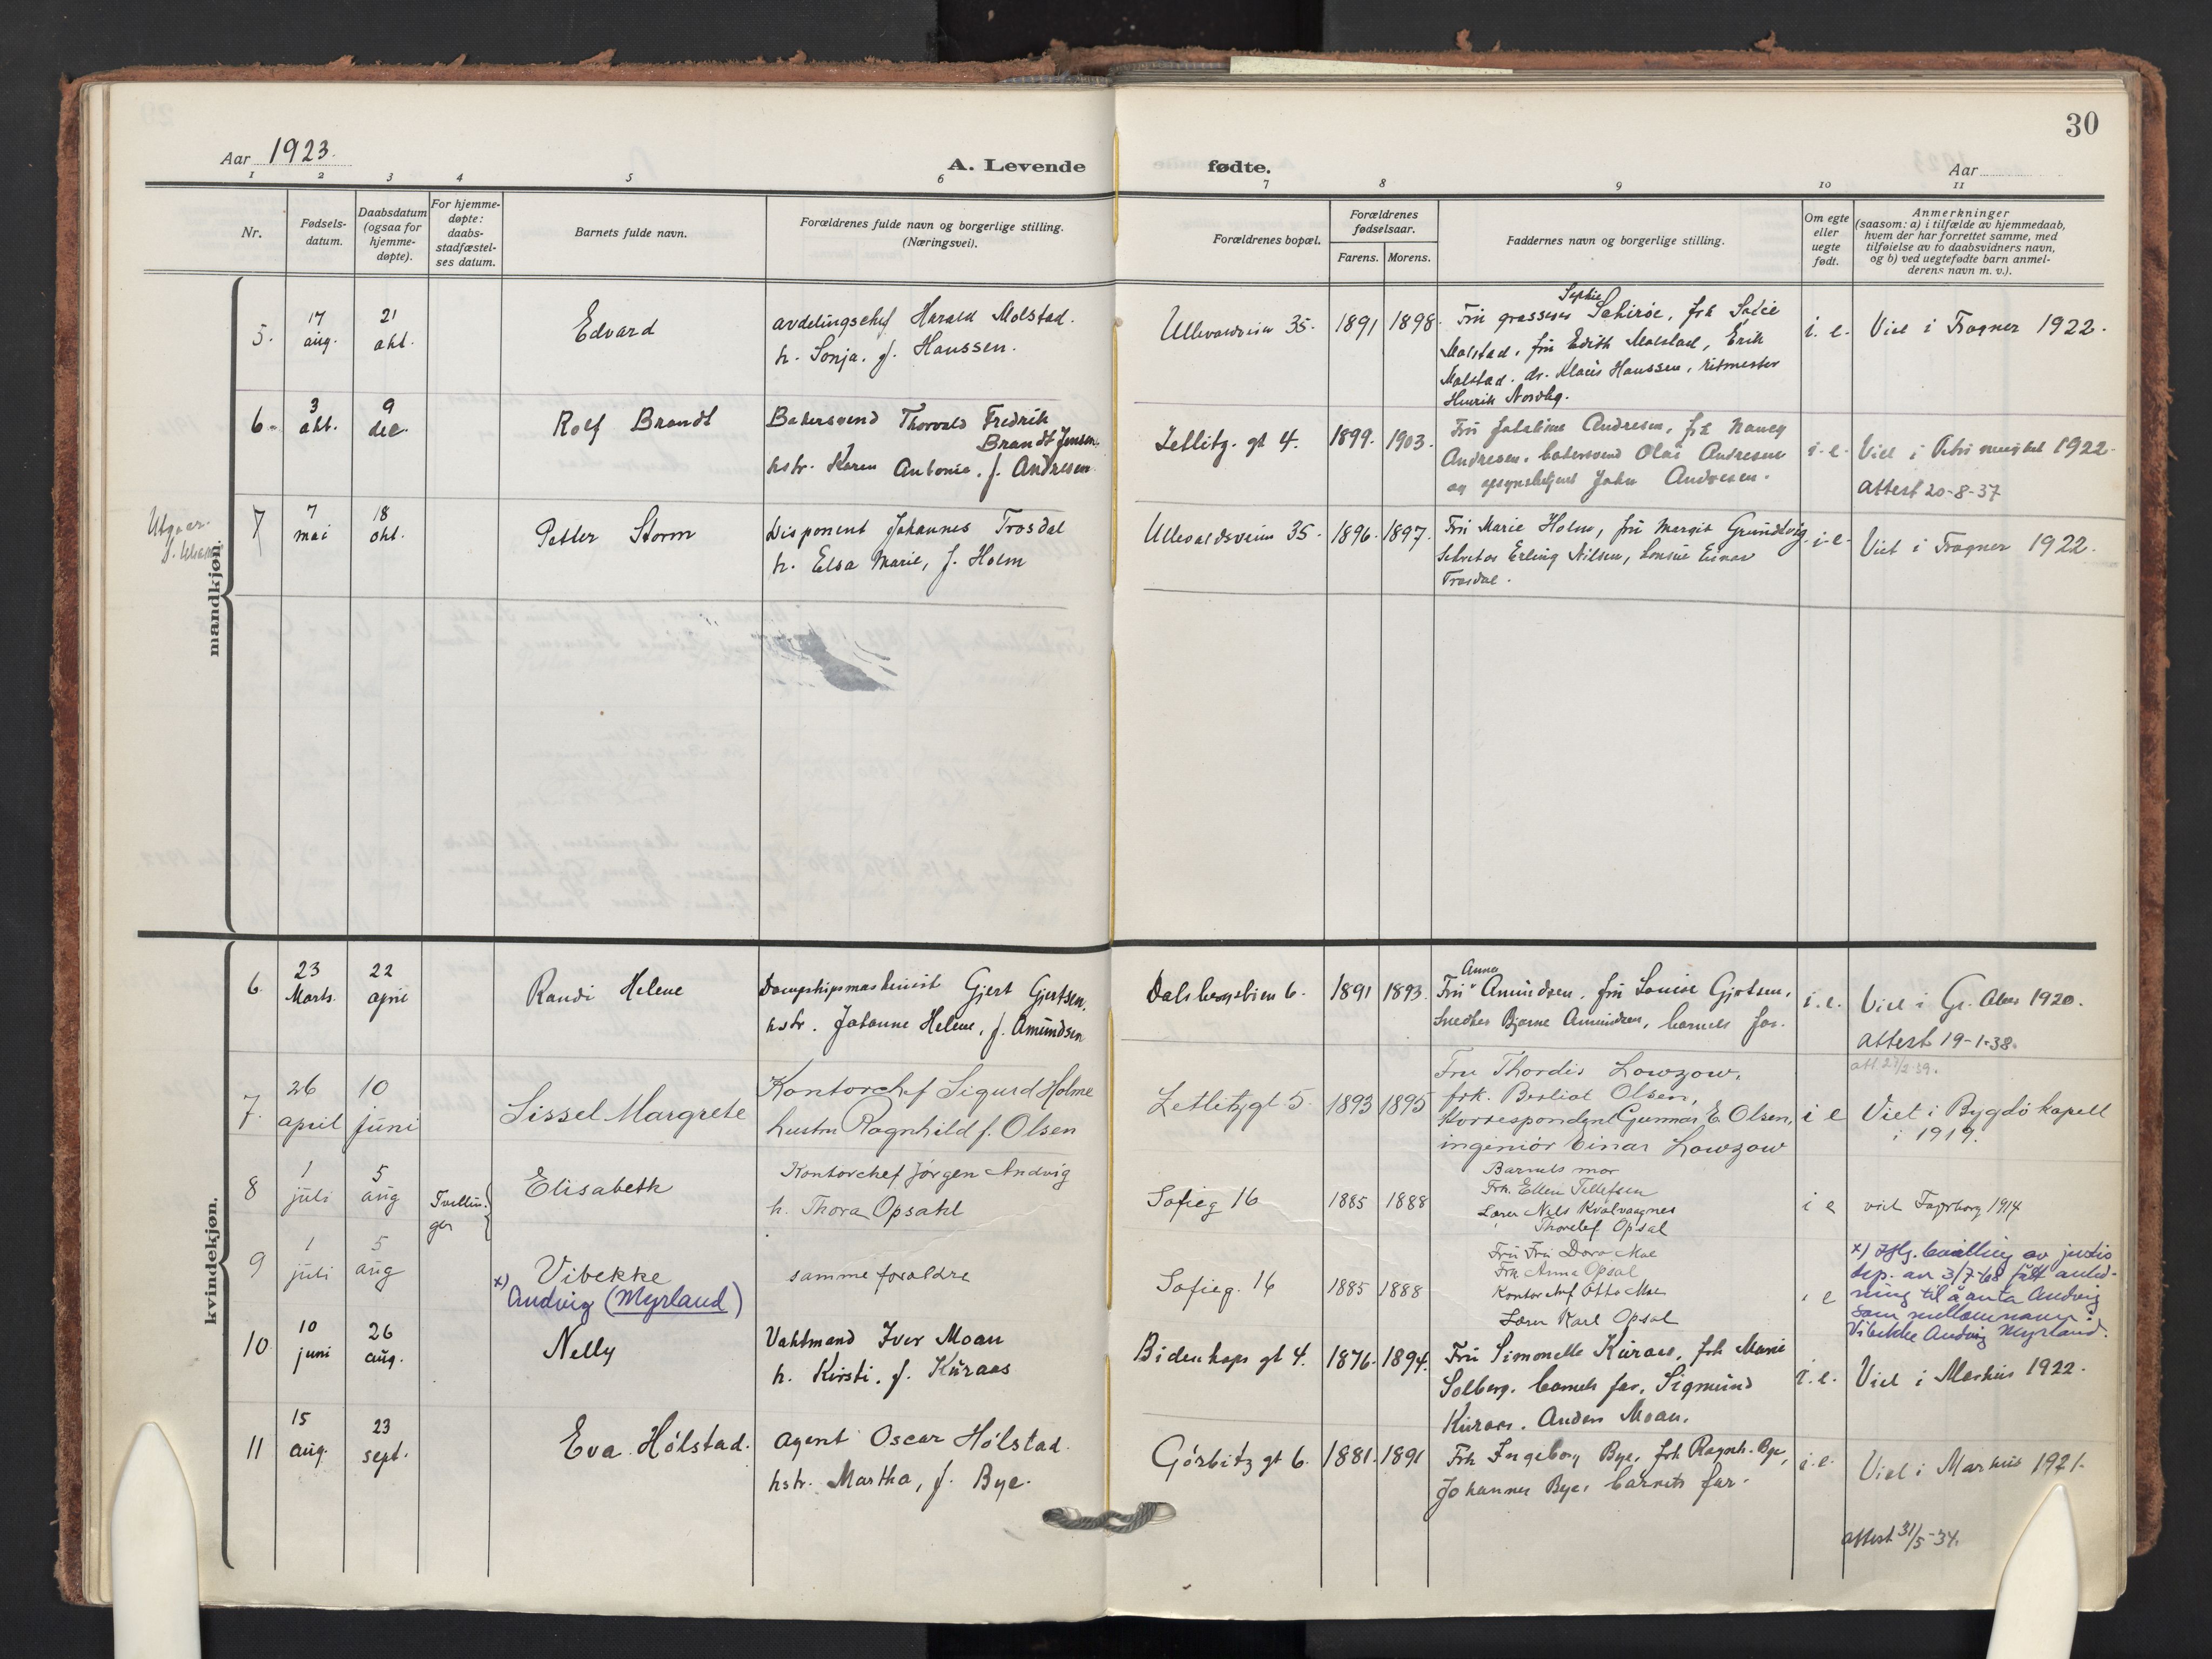 30
Aar 1923.
A. Levende fødte.
Aar
1 2 3 4 5 6 7 8 9 10 11
Nr.
Fødsels-
datum.
Daabsdatum
(ogsaa for
hjemme-
døpte).
For hjemme-
døpte:
daabs-
stadfæstel-
ses datum.
Barnets fulde navn.
Forældrenes fulde navn og borgerlige stilling.
(Næringsvei).
Forældrenes bopæl.
Forældrenes
fødselsaar.
Farens. Morens.
Faddernes navn og borgerlige stilling.
Om egte
eller
uegte
født.
Anmerkninger
(saasom: a) i tilfælde av hjemmedaab,
hvem der har forrettet samme, med
tilføielse av to daabsvidners navn,
og b) ved uegtefødte barn anmel-
derens navn m. v.).
mandkjøn.
5.
17
aug.
21
okt.
Edvard
avdelingschef Harald Molstad.
h. Sonja. f. Hanssen.
Ullevaldsveien 35.
1891
1898.
Sophie
Fru grosserer, frk
Molstad, fru Edith Molstad, Erik
Molstad. dr. Klaus Hanssen, ritmester
Henrik
i. e.
Viet i Fragner 1922.
6.
3
okt.
9
dec.
Rolf Brandt
Bakersvend Thorvald Fredrik
Brandt Jensen.
hstr. Karen Antonie, f. Andresen
Zetlitz. gt 4.
1899.
1903.
Fru Andresen, frk Nancy
Andresen, bakersvend Olai Andresen
og John Andresen.
i. e.
Viet i 1922.
attest 20-8-37
Utgaar.
7
7
mai
18
okt.
Petter Storm
Disponent Johannes Trosdal
h. Elsa Marie, f. Holm
Ullevaldsveien 35.
1896.
1897.
Fru Marie Holm, fru Margit Grundtvig
Sekretær Erling Nilsen, Einar
Trosdal.
i. e.
Viet i Fragner 1922.
kvindekjøn.
6
23
Marts.
22
april
Randi Helene
Dampskipsmaskinist Gjert Gjertsen.
hstr. Johanne Helene, f. Amundsen
Dalsbergstien 6.
1891
1893.
Anna
Fru Amundsen, fru Louise Gjertsen,
Snedker Bjarne Amundsen, barnets far.
i. e.
Viet i Gr. Aker 1920.
attest 19-1-38.
att. 27/2-39.
7.
26
april
10
juni
Sissel Margrete
Kontorchef Sigurd Holme
hustru Ragnhild f. Olsen
Zetlitzgt 5.
1893
1895
Fru Thordis Lowzow,
frk. Bergliot Olsen,
Korrespondent Gunnar E. Olsen,
ingeniør Einar Lowzow
i e
Viet i Bygdø kapell
i 1919.
8
1
juli
5
aug
Tvillin-
ger
Elisabeth
Kontorchef Jørgen Andvig
h. Thora Opsahl
Sofieg 16
1885
1888
Barnets mor
Frk. Ellen Tellefsen
Lærer Nils Kvalvaagnes
" Thorolf Opsal
i e
viet Fagerborg 1914
9
1
juli
5
aug
Vibekke
x) Andvig (Myrland)
samme foraldre
Sofieg. 16
1885
1888
Fru Fru Dora Moe
Frk Anna Opsal
Kontorchef Otto Moe
Lærer Karl Opsal
i e
x) Iflg. bevilling av justis
dep. av 3/7-68 fått anled-
ning til å anta Andvig
som mellomnavn:
Vibekke Andvig Myrland.
10
10
juni
26
aug.
Nelly
Vaktmand Iver Moan
h. Kirsti. f. Kuraas
Bidenkaps gt 4.
1876.
1894.
Fru Simonelle Kuraas, frk Marie
Solberg, barnets far, Sigmund
Kuraas. Anders Moan.
i. e.
Viet i Markus 1922.
11
15
aug.
23
sept.
Eva Hølstad.
Agent Oscar Hølstad.
hstr. Martha, f. Bye.
Gørbitz gt 6.
1881.
1891
Frk Ingeborg Bye, frk Ragnh. Bye,
Johannes Bye, barnets far.
i. e.
Viet i Markus 1921.
attest 31/5-34.